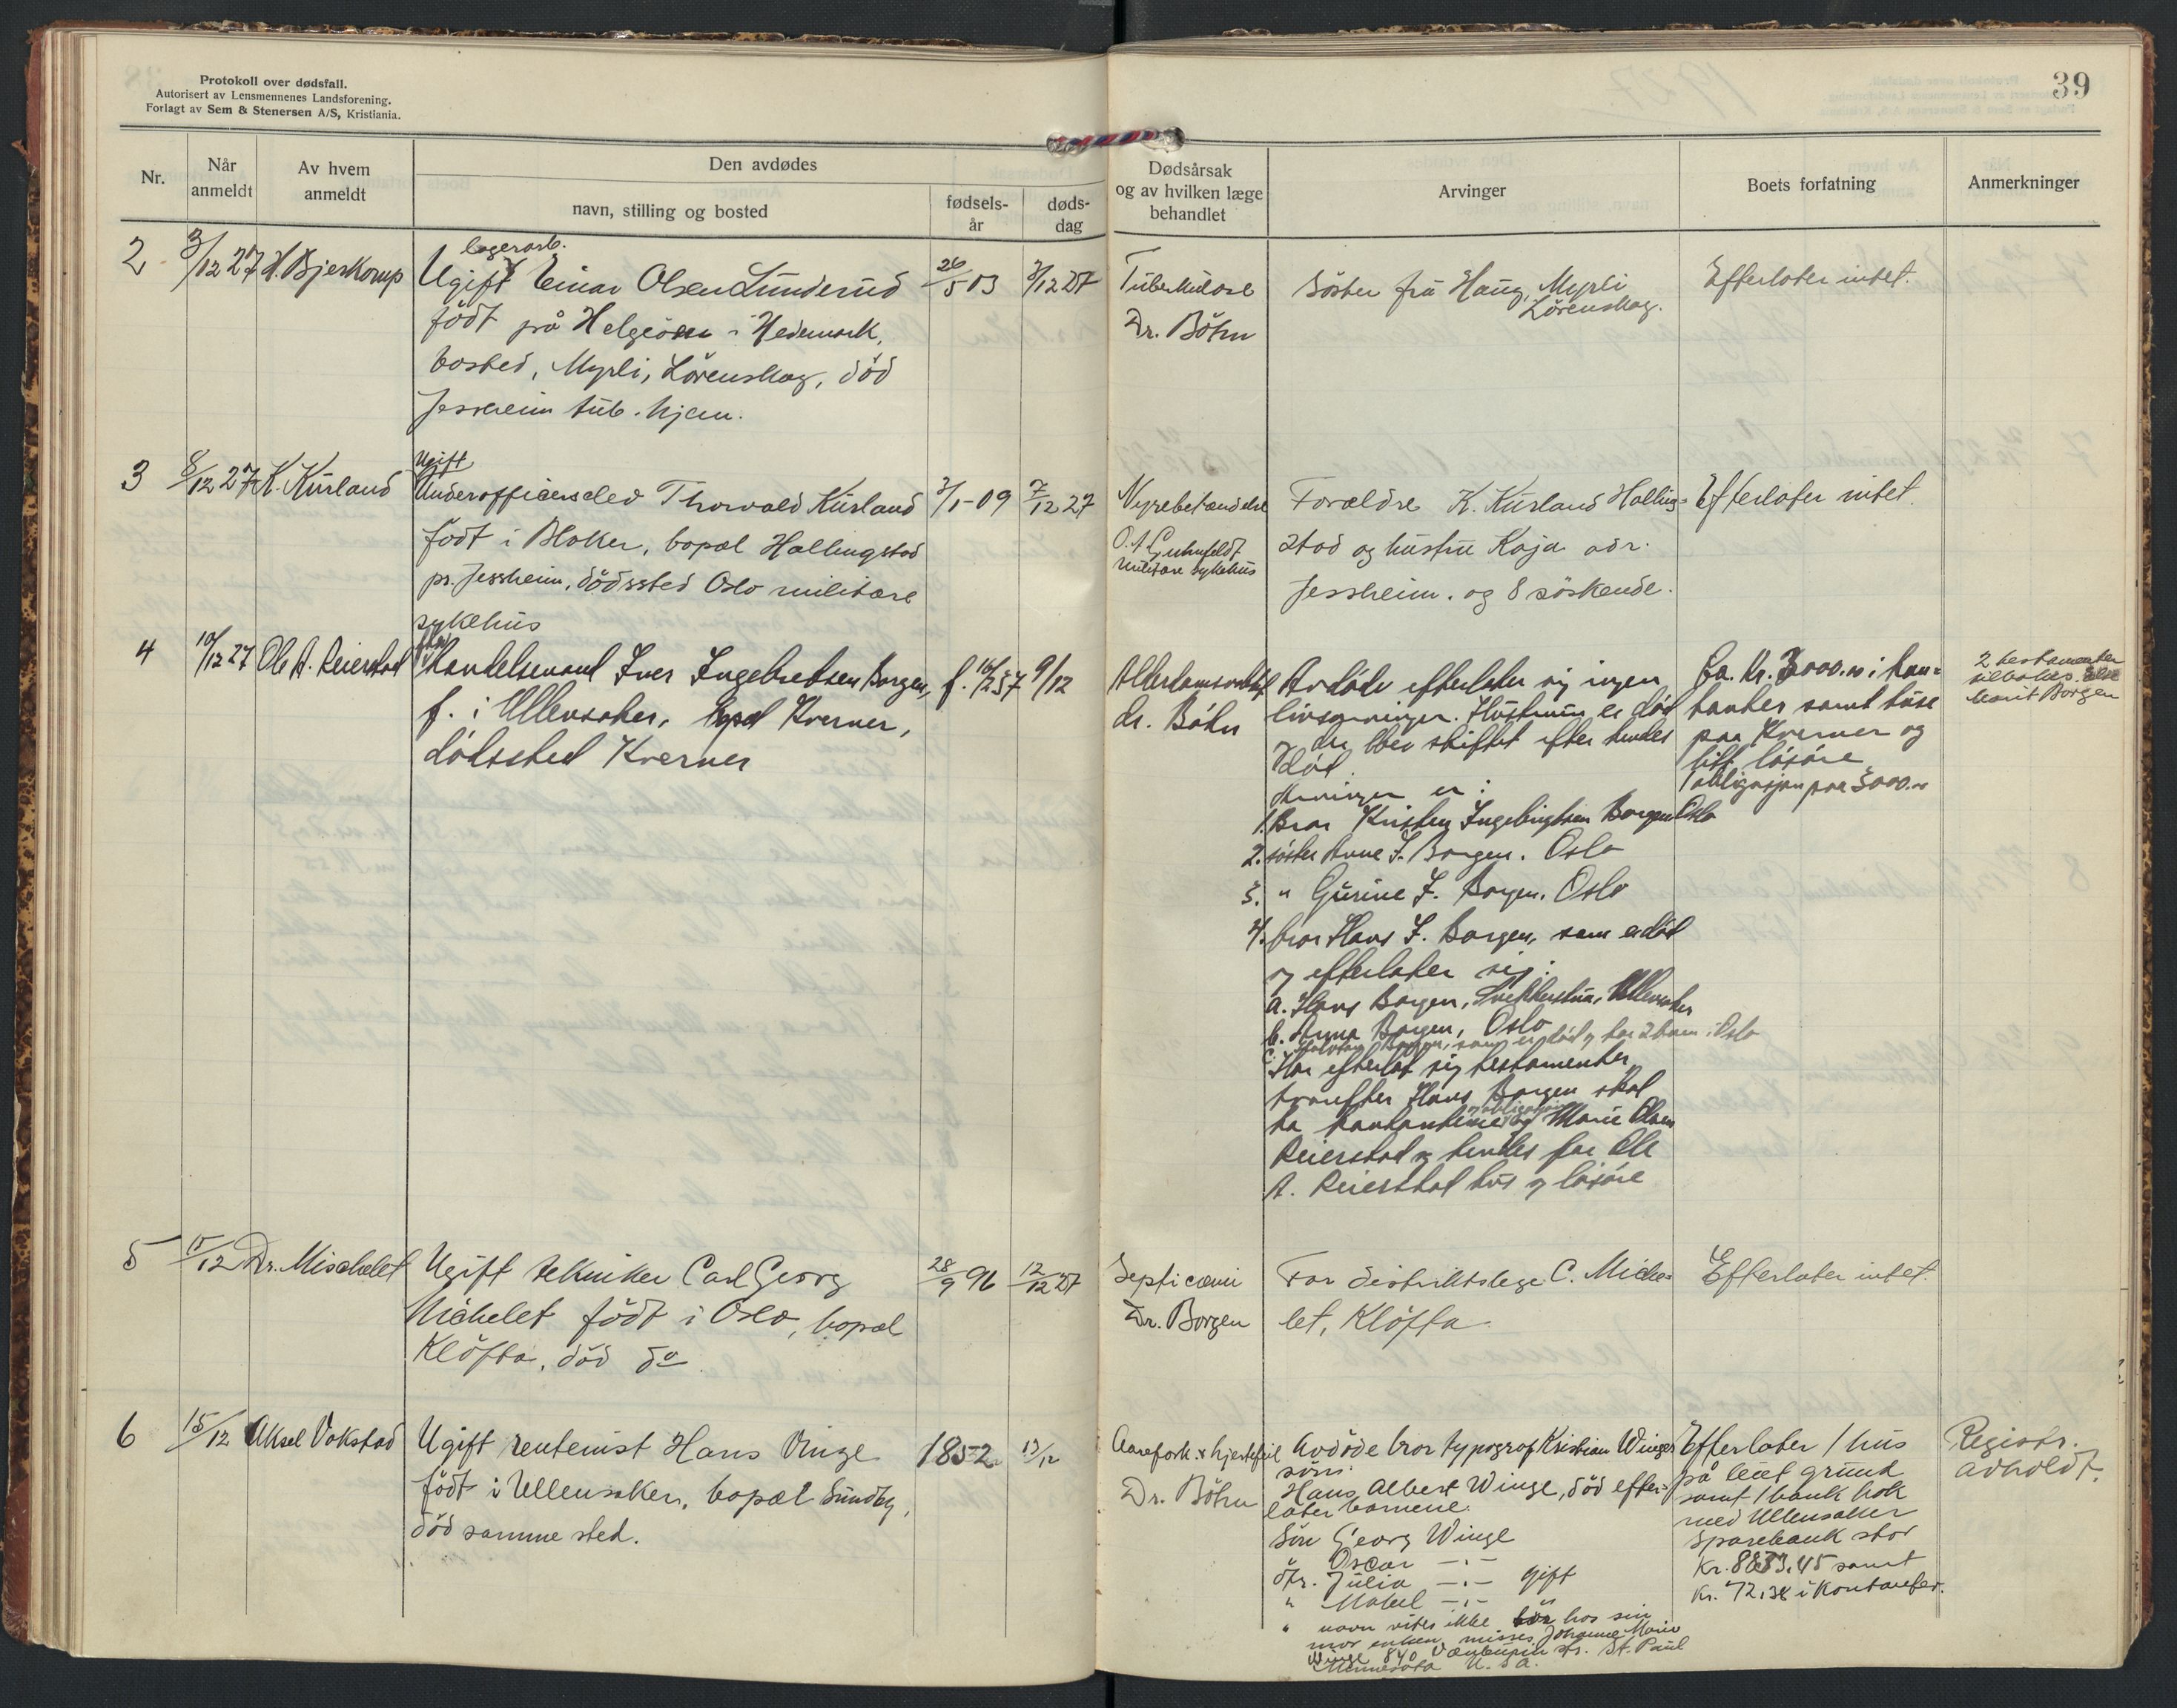 Protokoll over dødsfall.
Autorisert av Lensmennenes Landsforening.
Forlagt av Sem & Stenersen A/S, Kristiania.
39
Nr.
Når anmeldt
Av hvem anmeldt
Den avdødes
navn, stilling og bosted
fødsels-år
døds-dag
Dødsårsak og av hvilken læge behandlet
Arvinger
Boets forfatning
Anmerkninger
2 3/12 27 H. Bjerkorup
lagerarb.
Ugift Einar Olsen Lunderud 26/5 03 3/12 27
født på Helgøen i Hedemark,
bosted, Myrli, Lörenskog, död
Jessheim tub. hjem.
Tuberkulose
Dr. Böhn
Söster fru Haug, Myrli
Lörenskog.
Efterlater intet.
3 8/12 27 K. Kürland
Ugift
Underofficerselev Thorvald Kürland 7/1-09 7/12 27
födt i Blaker, bopæl Hallingstad
pr. Jessheim, dödssted Oslo militære
sykehus
Nyrebetændelse
militære sykehus
Forældre K. Kürland Halling=
stad og hustru Kaja adr.
Jessheim. og 8 söskende.
Efterlater intet.
4 10/12 27 Ole A. Reierstad
Handelsmand Iver Ingebretsen Borgen, f. 16/2 57 9/12
f. i Ullensaker, bopel Kverner,
dödssted Kverner
Alderdomssvakhet
dr. Böhn
Avdöde efterlater sig ingen
livsarvinger. Hustruen er död
og der blev skiftet efter hendes
död.
Arvinger er:
1. Bror Kristen Ingebrigtsen Borgen Oslo
2. söster Anne I. Borgen. Oslo
3. " Gurine I. Borgen. Oslo
4. bror Hans I. Borgen, som er död
og efterlater sig:
a. Hans Borgen, Ullensaker
b. Anna Borgen, Oslo
c. Borgen, som er död og har 2 barn i Oslo
Har efterlat sig testamenter
hvorefter Hans Borgen skal
ha kontantene og Marie Olsen
Reierstad og hendes far Ole
A. Reierstad hus og lösöre
Ca. Kr. 3000.00 i kon=
tanter samt huse
paa Kverner og
litt lösöre
1 obligasjon paa 3000.00
2 testamenter
Borgen
5 15/12 Dr. Mischelet
Ugift tekniker Carl Georg 28/9 96 12/12 27
Michelet födt i Oslo, bopæl
Klöfta, död do
Septicæmi
Dr. Borgen
Far distriktslege C. Miche=
let, Klöfta.
Efterlater intet.
6 15/12 Aksel Vokstad
Ugift rentenist Hans Vinge 1852 13/12
födt i Ullensaker, bopæl Sundby,
död samme sted.
Aarefork. & hjertefeil
Dr. Böhn
Avdöde bror typograf Kristian Winges
söns.
Hans Albert Winge, död efter=
later barnene.
Sön Georg Winge
Oscar —"—
dtr. Julia —"— gift
" Mabel —"— "
" navn vites ikke bor hos sin
mor enken, misses Johanne Marie
Winge 840 str. St. Paul
Minnesota U.S.A.
Efterlater 1 hus
på leiet grund
samt 1 bank bok
med Ullensaker
Sparebank stor
Kr. 8833,45 samt
Kr. 72,38 i kontanter.
Registr.
avholdt.